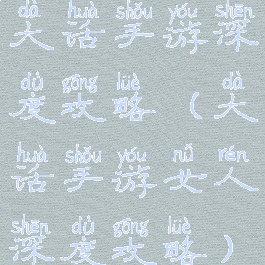 dà huà shǒu yóu shēn
大话手游深
dù gōng lüè dà
度攻略（大
huà shǒu yóu nǚ rén
话手游女人
shēn dù gōng lüè
深度攻略）